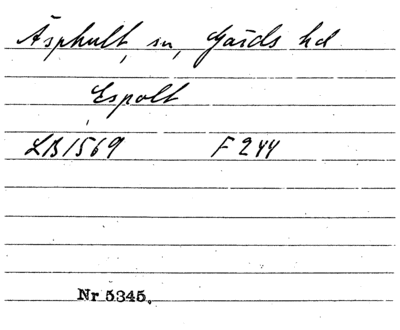 Äsphult, sn, Gärds hd
Espolt
LB 1569 F 244
Nr 5345.